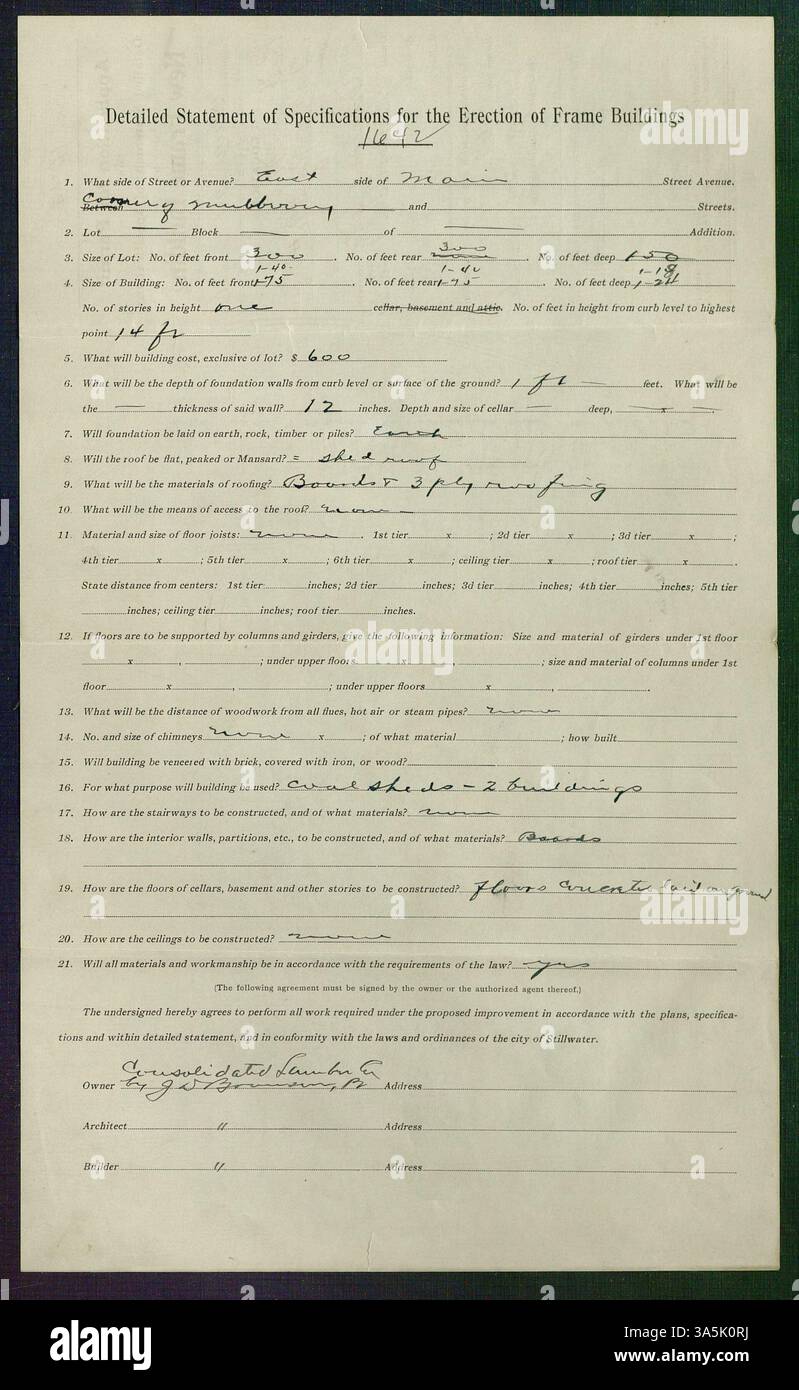 Detailed Statement of Specifications for the Erection of Frame Buildings
1642
1. What side of Street or Avenue? East side of Main Street Avenue.
Between Corner of Mulberry and Streets.
2. Lot — Block — of — Addition.
3. Size of Lot: No. of feet front 300. No. of feet rear 300. No. of feet deep 150
1-40. 1-40 1-18
4. Size of Building: No. of feet front 1-75. No. of feet rear 1-75. No. of feet deep 1-24
No. of stories in height one cellar, basement and attic. No. of feet in height from curb level to highest
point 14 ft
5. What will building cost, exclusive of lot? $ 600
6. What will be the depth of foundation walls from curb level or surface of the ground? 1 ft — feet. What will be
the — thickness of said wall? 12 inches. Depth and size of cellar — deep, — x —.
7. Will foundation be laid on earth, rock, timber or piles? Earth
8. Will the roof be flat, peaked or Mansard? = shed roof
9. What will be the materials of roofing? Boards & 3 ply roofing
10. What will be the means of access to the roof? none —
11. Material and size of floor joists: none. 1st tier x ; 2d tier x ; 3d tier x ;
4th tier x ; 5th tier x ; 6th tier x ; ceiling tier x ; roof tier x .
State distance from centers: 1st tier inches; 2d tier inches; 3d tier inches; 4th tier inches; 5th tier
inches; ceiling tier inches; roof tier inches.
12. If floors are to be supported by columns and girders, give the following information: Size and material of girders under 1st floor
x , ; under upper floors x , ; size and material of columns under 1st
floor x , ; under upper floors x , .
13. What will be the distance of woodwork from all flues, hot air or steam pipes? none
14. No. and size of chimneys none x ; of what material ; how built
15. Will building be veneered with brick, covered with iron, or wood?
16. For what purpose will building be used? coal sheds - 2 buildings
17. How are the stairways to be constructed, and of what materials? none
18. How are the interior walls, partitions, etc., to be constructed, and of what materials? Boards
19. How are the floors of cellars, basement and other stories to be constructed? floors concrete laid on ground
20. How are the ceilings to be constructed? none
21. Will all materials and workmanship be in accordance with the requirements of the law? yes
(The following agreement must be signed by the owner or the authorized agent thereof.)
The undersigned hereby agrees to perform all work required under the proposed improvement in accordance with the plans, specifica-
tions and within detailed statement, and in conformity with the laws and ordinances of the city of Stillwater.
Consolidated Lumber Co
Owner by J D Address
Architect " Address
Builder " Address
alamy
alamy
alamy
alamy
Image ID: 3A5K0RJ
www.alamy.com